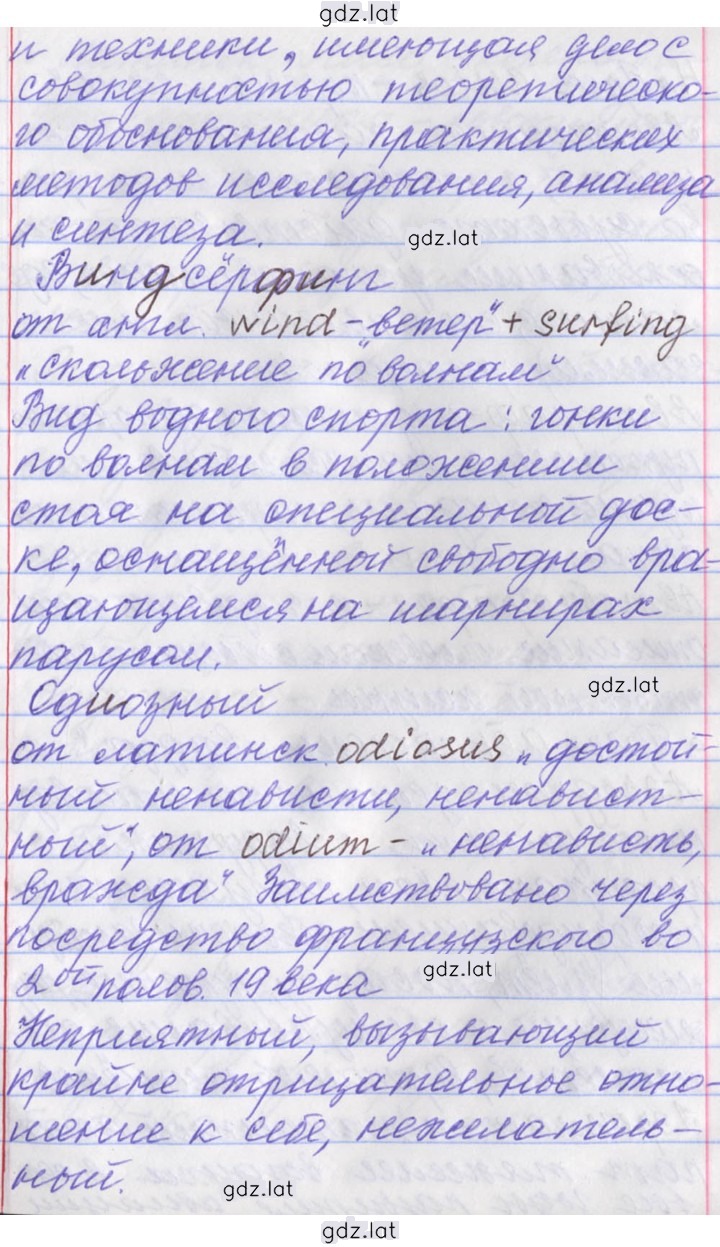 gdz.lat
и техники, имеющая дело с
совокупностью теоретическо-
го обоснования, практических
методов исследования, анализа
и синтеза.
gdz.lat
Виндсёрфинг
от англ. wind - ветер" + surfing
„скольжение по "волнам"
Вид водного спорта: гонки
по волнам в положении
стоя на специальной дос-
ке, оснащённой свободно вра-
щающемся на шарнирах
парусом.
gdz.lat
Одиозный
от латинск. odiosus „достой-
ный ненависти, ненавист-
ный", от odium - „ненависть,
вражда" Заимствовано через
посредство французского во
2ой полов. 19 века
gdz.lat
Неприятный, вызывающий
крайне отрицательное отно-
шение к себе, нежелатель-
ный.
gdz.lat
gdz.lat